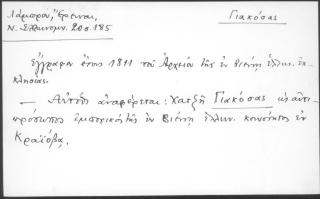 Λάμπρου, Ἔρευναι, Γιακόσας
Ν. Ἑλληνομν. 20 σ. 185
Ἔγγραφον ἔτους 1811 τοῦ Ἀρχείου τῆς ἐν Βιέννῃ ἑλλην. ἐκ-
κλησίας.
— Αὐτόθι ἀναφέρεται: Χατζῆ Γιακόσας ὡς ἀντι-
πρόσωπος ἐμπορικὸς τῆς ἐν Βιέννῃ ἑλλην. κοινότητος ἐν
Κραϊόβᾳ.